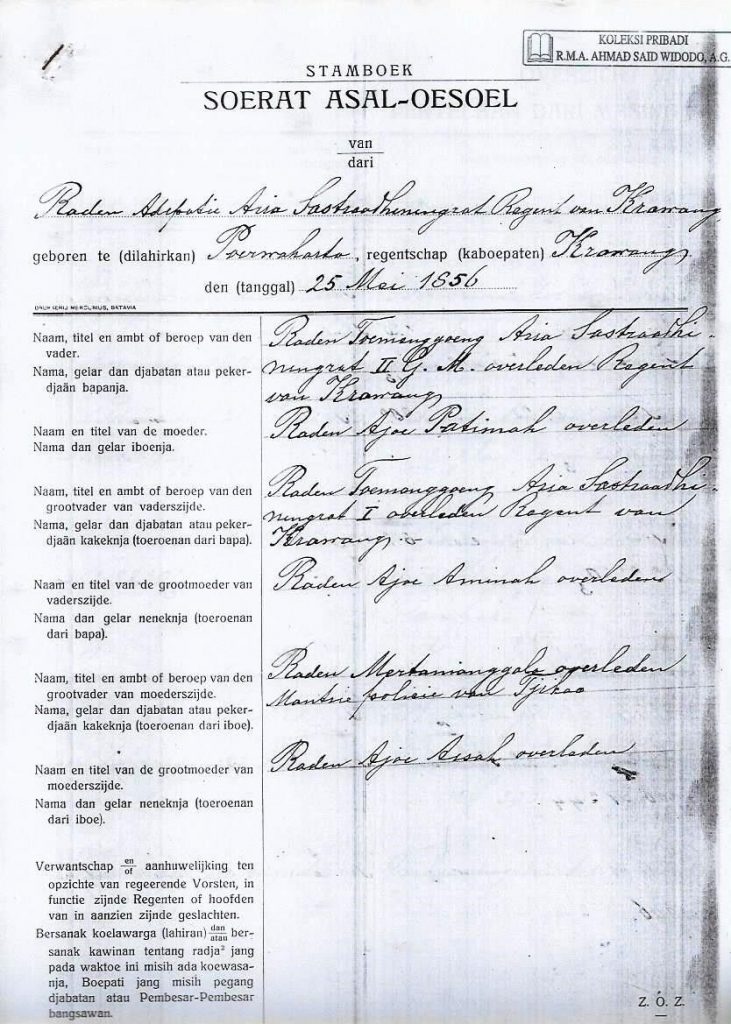 1
KOLEKSI PRIBADI
R.M.A. AHMAD SAID WIDODO, A.G.
STAMBOEK
SOERAT ASAL-OESOEL
van
dari
Raden Adipatie Aria Sastraadheningrat Regent van Krawang
geboren te (dilahirkan) Poerwakarta, regentschap (kaboepaten) Krawang
den (tanggal) 25 Mei 1856
DRUKKERIJ MERCURIUS, BATAVIA
Naam, titel en ambt of beroep van den
vader.
Nama, gelar dan djabatan atau peker-
djaän bapanja.
Raden Toemanggoeng Aria Sastraadhi-
ningrat II G. M. overleden Regent
van Krawang
Naam en titel van de moeder.
Nama dan gelar iboenja.
Raden Ajoe Patimah overleden
Naam, titel en ambt of beroep van den
grootvader van vaderszijde.
Nama, gelar dan djabatan atau peker-
djaän kakeknja (toeroenan dari bapa).
Raden Toemanggoeng Aria Sastraadhi-
ningrat I overleden Regent van
Krawang
Naam en titel van de grootmoeder van
vaderszijde.
Nama dan gelar neneknja (toeroenan
dari bapa).
Raden Ajoe Aminah overleden
Naam, titel en ambt of beroep van den
grootvader van moederszijde.
Nama, gelar dan djabatan atau peker-
djaän kakeknja (toeroenan dari iboe).
Raden Mertamanggala overleden
Mantrie polisie van Tjikao
Naam en titel van de grootmoeder van
moederszijde.
Nama dan gelar neneknja (toeroenan
dari iboe).
Raden Ajoe Aisah overleden
Verwantschap en/of aanhuwelijking ten
opzichte van regeerende Vorsten, in
functie zijnde Regenten of hoofden
van in aanzien zijnde geslachten.
Bersanak koelawarga (lahiran) dan/atau ber-
sanak kawinan tentang radja² jang
pada waktoe ini misih ada koewasa-
nja, Boepati jang misih pegang
djabatan atau Pembesar-Pembesar
bangsawan.
Z. O. Z.